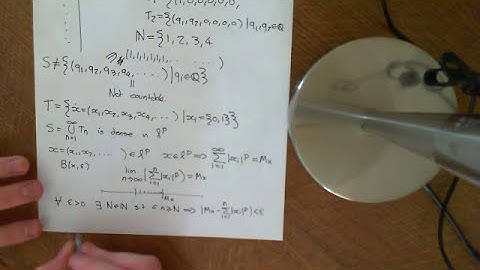 T₁={(1,0,0,0,0,0,
T₂={(q₁,q₂,0,0,0,0)|q₁,q₂∈Q
N={1,2,3,4
(1,1,1,1,1,1, ......)
S≠{(q₁,q₂,q₃,q₄, ......)|qᵢ∈Q}
Not countable.
T={x=(x₁,x₂,x₃,x₄, ......)|xᵢ={0,1}}
S=⋃ₙ₌₁^∞ Tₙ is dense in ℓᵖ
x=(x₁,x₂, ......)∈ℓᵖ x∈ℓᵖ ⟹ ∑ᵢ₌₁^∞|xᵢ|ᵖ=Mₓ
B(x,ε) lim n→∞ |∑ᵢ₌₁ⁿ|xᵢ|ᵖ|=Mₓ
Mₓ
∀ ε>0 ∃ N∈ℕ s.t n≥N ⟹ |Mₓ-∑ᵢ₌₁ⁿ|xᵢ|ᵖ|<ε